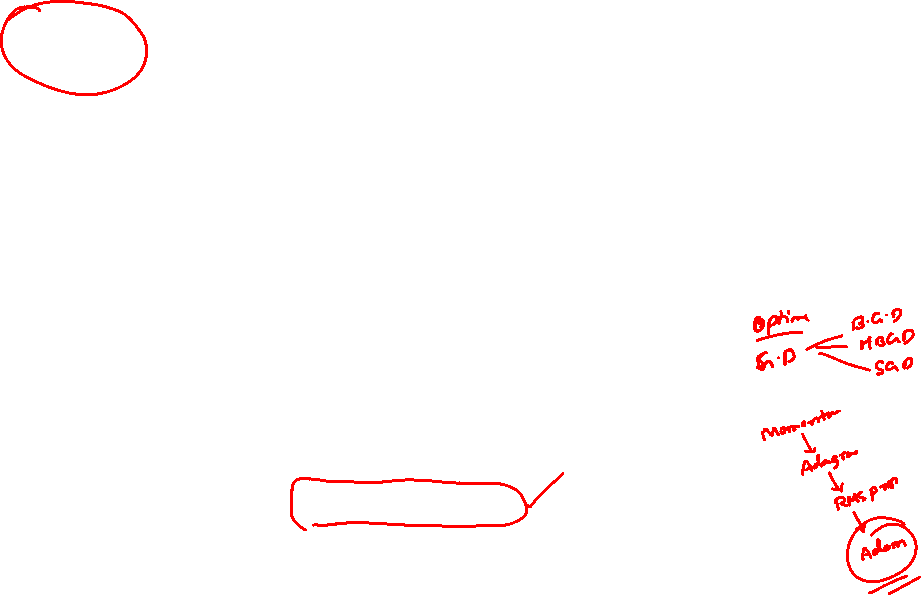 Optim
G.D
B.G.D
MBGD
SGD
Momentum
Adagra
RMSprop
Adam